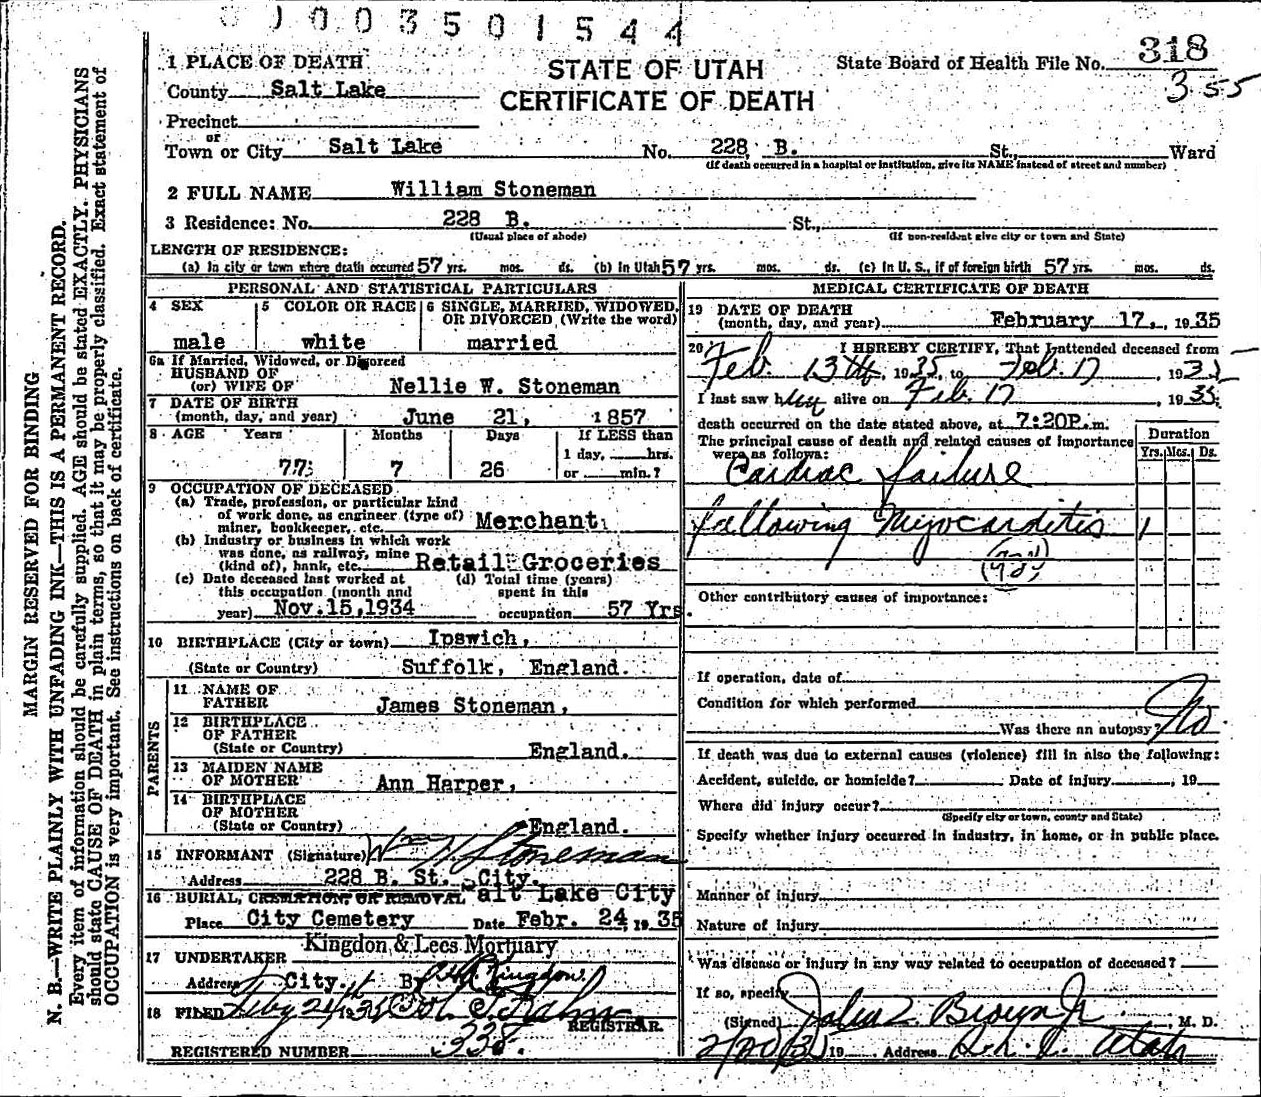 003501544
318
355
MARGIN RESERVED FOR BINDING
N. B.—WRITE PLAINLY WITH UNFADING INK—THIS IS A PERMANENT RECORD.
Every item of information should be carefully supplied. AGE should be stated EXACTLY. PHYSICIANS
should state CAUSE OF DEATH in plain terms, so that it may be properly classified. Exact statement of
OCCUPATION is very important. See instructions on back of certificate.
STATE OF UTAH
CERTIFICATE OF DEATH
State Board of Health File No.
1 PLACE OF DEATH
County Salt Lake
Precinct
or
Town or City Salt Lake No. 228 B. St., Ward
(If death occurred in a hospital or institution, give its NAME instead of street and number)
2 FULL NAME William Stoneman
3 Residence: No. 228 B. St.,
(Usual place of abode) (If non-resident give city or town and State)
LENGTH OF RESIDENCE:
(a) In city or town where death occurred 57 yrs. mos. ds. (b) In Utah 57 yrs. mos. ds. (c) In U. S., if of foreign birth 57 yrs. mos. ds.
PERSONAL AND STATISTICAL PARTICULARS
4 SEX male
5 COLOR OR RACE white
6 SINGLE, MARRIED, WIDOWED,
OR DIVORCED (Write the word)
married
6a If Married, Widowed, or Divorced
HUSBAND OF
(or) WIFE OF Nellie W. Stoneman
7 DATE OF BIRTH
(month, day, and year) June 21, 1857
8 AGE Years Months Days If LESS than
1 day, hrs.
77 7 26 or min.?
9 OCCUPATION OF DECEASED
(a) Trade, profession, or particular kind
of work done, as engineer (type of)
miner, bookkeeper, etc. Merchant
(b) Industry or business in which work
was done, as railway, mine
(kind of), bank, etc. Retail Groceries
(c) Date deceased last worked at
this occupation (month and
year) Nov. 15, 1934
(d) Total time (years)
spent in this
occupation 57 Yrs.
10 BIRTHPLACE (City or town) Ipswich,
(State or Country) Suffolk, England.
PARENTS
11 NAME OF
FATHER James Stoneman,
12 BIRTHPLACE
OF FATHER
(State or Country) England.
13 MAIDEN NAME
OF MOTHER Ann Harper,
14 BIRTHPLACE
OF MOTHER
(State or Country) England.
15 INFORMANT (Signature) Wm H. Stoneman
Address 228 B. St. City.
16 BURIAL, CREMATION, OR REMOVAL Salt Lake City
Place City Cemetery Date Febr. 24, 1935
17 UNDERTAKER Kingdon & Lees Mortuary
Address City. By Kingdon
18 FILED
REGISTRAR.
REGISTERED NUMBER 338.
MEDICAL CERTIFICATE OF DEATH
19 DATE OF DEATH
(month, day, and year) February 17, 1935
20 I HEREBY CERTIFY, That I attended deceased from
Feb. 13th, 1935, to Feb. 17, 1935
I last saw him alive on Feb. 17, 1935
death occurred on the date stated above, at 7:20P.m.
The principal cause of death and related causes of importance
were as follows:
Duration
Yrs. Mos. Ds.
Cardiac failure
following Myocarditis 1
Other contributory causes of importance:
If operation, date of
Condition for which performed
Was there an autopsy? No
If death was due to external causes (violence) fill in also the following:
Accident, suicide, or homicide? Date of injury , 19
Where did injury occur?
(Specify city or town, county and State)
Specify whether injury occurred in industry, in home, or in public place.
Manner of injury
Nature of injury
Was disease or injury in any way related to occupation of deceased?
If so, specify
(Signed) Brown Jr , M. D.
19 Address S. L. C. Utah